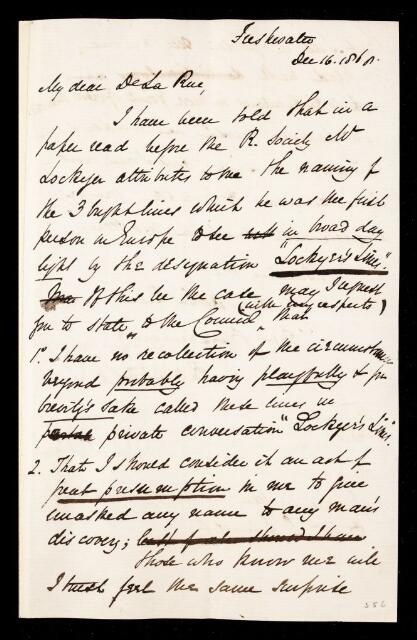 Freshwater
Dec 16. 186
My dear De La Rue,
I have been told that in a
paper read before the R. Society Mr
Lockyer attributes to me the naming of
the 3 bright lines which he was the first
person in Europe to see in broad day
light by the designation "Lockyer's Lines."
If this be the case may I request
(with my respects)
you to state to the Council, that
1º. I have no recollection of the circumstance
beyond probably having playfully & for
brevity's sake called these lines in
private conversation "Lockyer's Lines".
2. That I should consider it an act of
great presumption in me to give
unasked any name to any man's
discovery;
those who know me will
I trust feel the same surprise
356